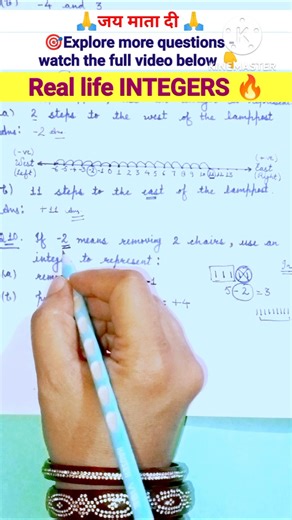 🙏 जय माता दी 🙏
🎯Explore more questions -
watch the full video below 👇
KINEMASTER
Real life INTEGERS 🔥
-4 and 3
a) 2 steps to the west of the lamppost
Ans: -2 Ans
(-ve) (+ve)
West East
(Left) (Right)
-6 -5 -4 -3 -2 -1 0 1 2 3 4 5 6 7 8 9 10 11 12 13
b) 11 steps to the east of the lamppost.
Ans: +11 Ans
Q.10. If -2 means removing 2 chairs, use an
integ to represent:
(a) rem -1
5-2=3
(b) = +4